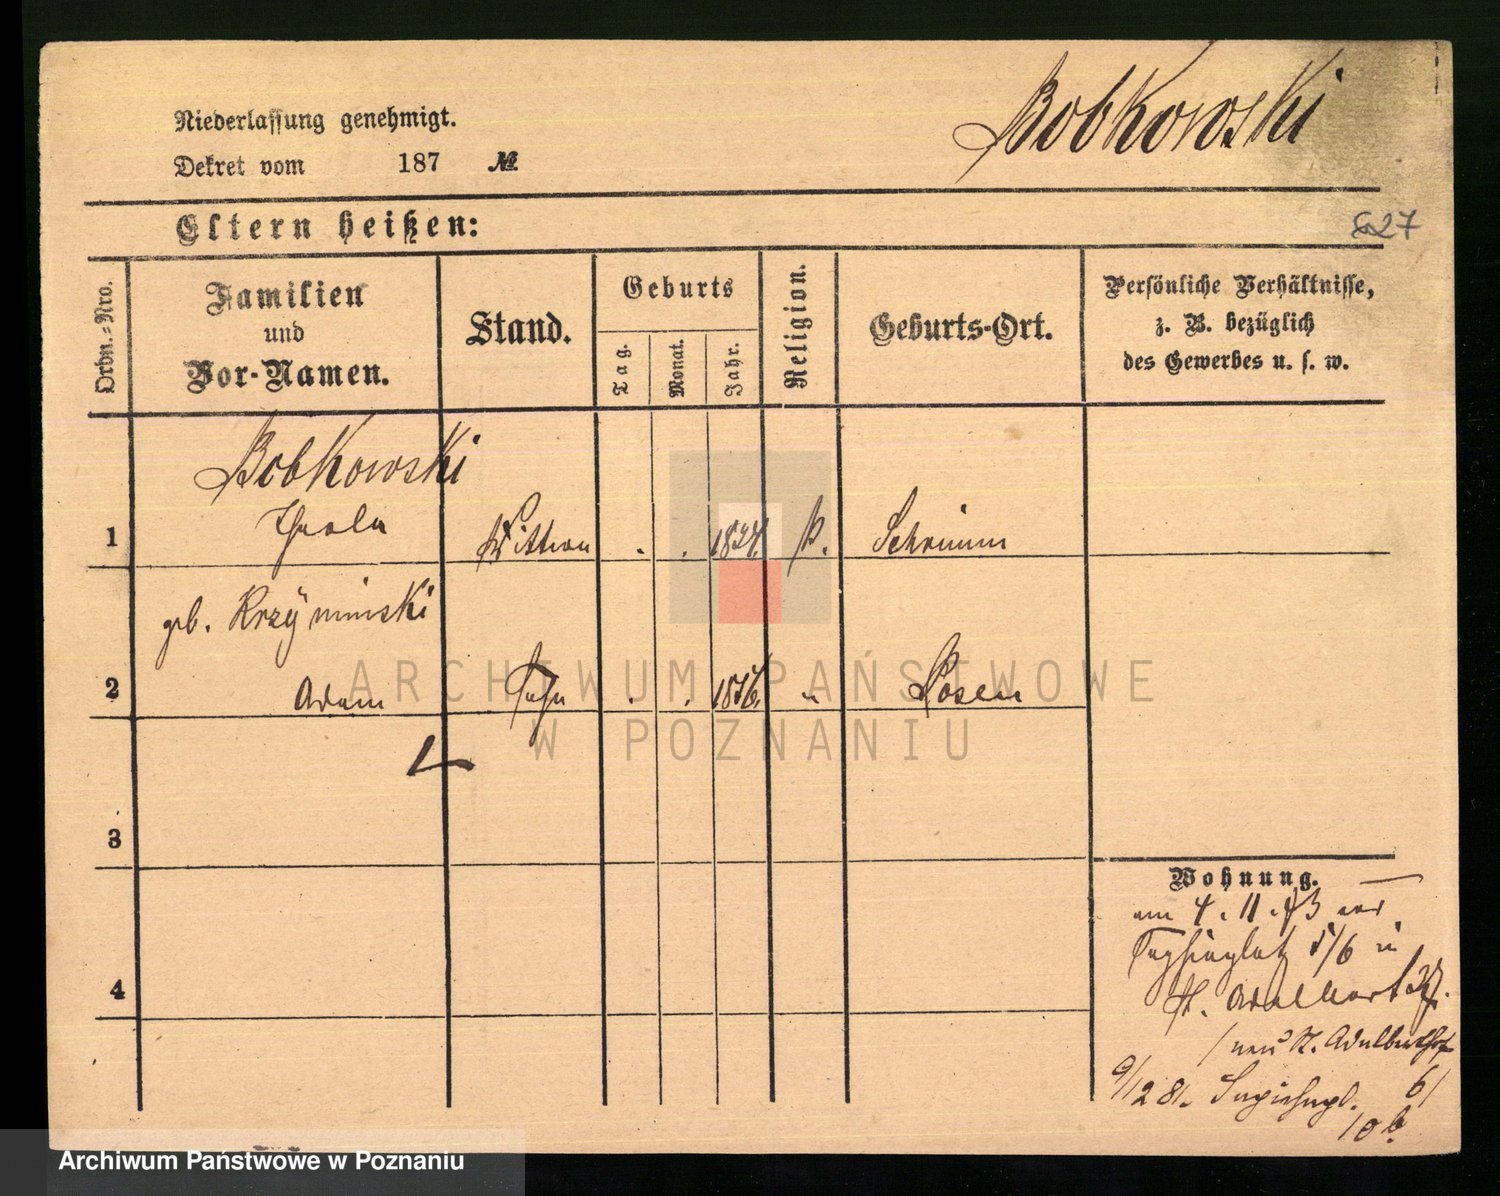 Bobkowski
Niederlassung genehmigt.
Dekret vom 187 №
Eltern heißen:
827
Ordn.-Nro.
Familien
und
Vor-Namen.
Stand.
Geburts
Tag.
Monat.
Jahr.
Religion.
Geburts-Ort.
Persönliche Verhältnisse,
z. B. bezüglich
des Gewerbes u. s. w.
Bobkowski
1 Thecla Wittwe . . 1824 k. Schrimm
geb. Krzyminski
2 Adam Sohn . . 1856. " Posen
3
4
Wohnung.
am 4. 11. 73 von
Sapiehaplatz 5/6 in
St. Adalbert
/ neu St. Adalberthof
9/12 81. Sapiehapl. 6/
10 b
ARCHIWUM PAŃSTWOWE
W POZNANIU
Archiwum Państwowe w Poznaniu